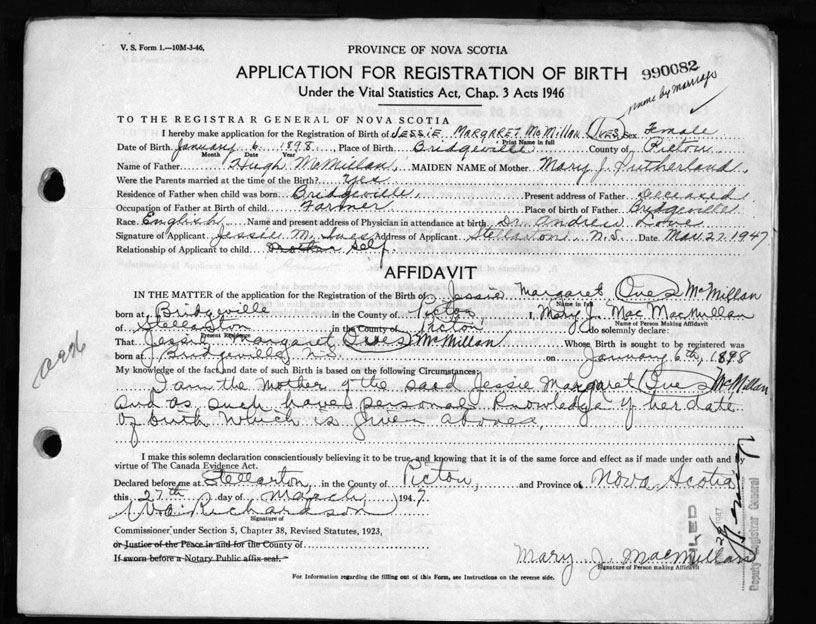 V. S. Form 1.—10M-3-46.
PROVINCE OF NOVA SCOTIA
APPLICATION FOR REGISTRATION OF BIRTH 990082
Under the Vital Statistics Act, Chap. 3 Acts 1946
name by marriage
TO THE REGISTRAR GENERAL OF NOVA SCOTIA
I hereby make application for the Registration of Birth of JESSIE MARGARET McMillan (Ives) Sex Female
Print Name in full
Date of Birth January 6 1898 Place of Birth Bridgeville County of Pictou
Month Date Year
Name of Father Hugh McMillan, MAIDEN NAME of Mother Mary J. Sutherland,
Were the Parents married at the time of the Birth? Yes
Residence of Father when child was born Bridgeville, Present address of Father Deceased
Occupation of Father at Birth of child Farmer Place of birth of Father Bridgeville
Race English Name and present address of Physician in attendance at birth Dr Andrew Love
Signature of Applicant Jessie M. Ives Address of Applicant Stellarton N.S. Date Mar 27 1947
Relationship of Applicant to child mother Self.
AFFIDAVIT
IN THE MATTER of the application for the Registration of the Birth of Jessie Margaret (Ives) McMillan
Name in full
born at Bridgeville in the County of Pictou I, Mary J. Mac MacMullan
Name of Person Making Affidavit
of Stellarton in the County of Pictou do solemnly declare:
Present Residence
That Jessie Margaret (Ives) McMillan Whose Birth is sought to be registered was
born at Bridgeville N.S. on January 6th, 1898
My knowledge of the fact and date of such Birth is based on the following Circumstances:
I am the Mother of the said Jessie Margaret (Ives) McMillan
and as such have personal knowledge of her date
of birth which is given above.
I make this solemn declaration conscientiously believing it to be true, and knowing that it is of the same force and effect as if made under oath and by
virtue of The Canada Evidence Act.
Declared before me at Stellarton, in the County of Pictou, and Province of Nova Scotia
this 27th day of March 1947
Richardson
Signature of
Commissioner under Section 5, Chapter 38, Revised Statutes, 1923,
or Justice of the Peace in and for the County of
If sworn before a Notary Public affix seal.
Mary J. MacMullan
Signature of Person making Affidavit
For Information regarding the filling out of this Form, see Instructions on the reverse side.
FILED
Deputy Registrar General